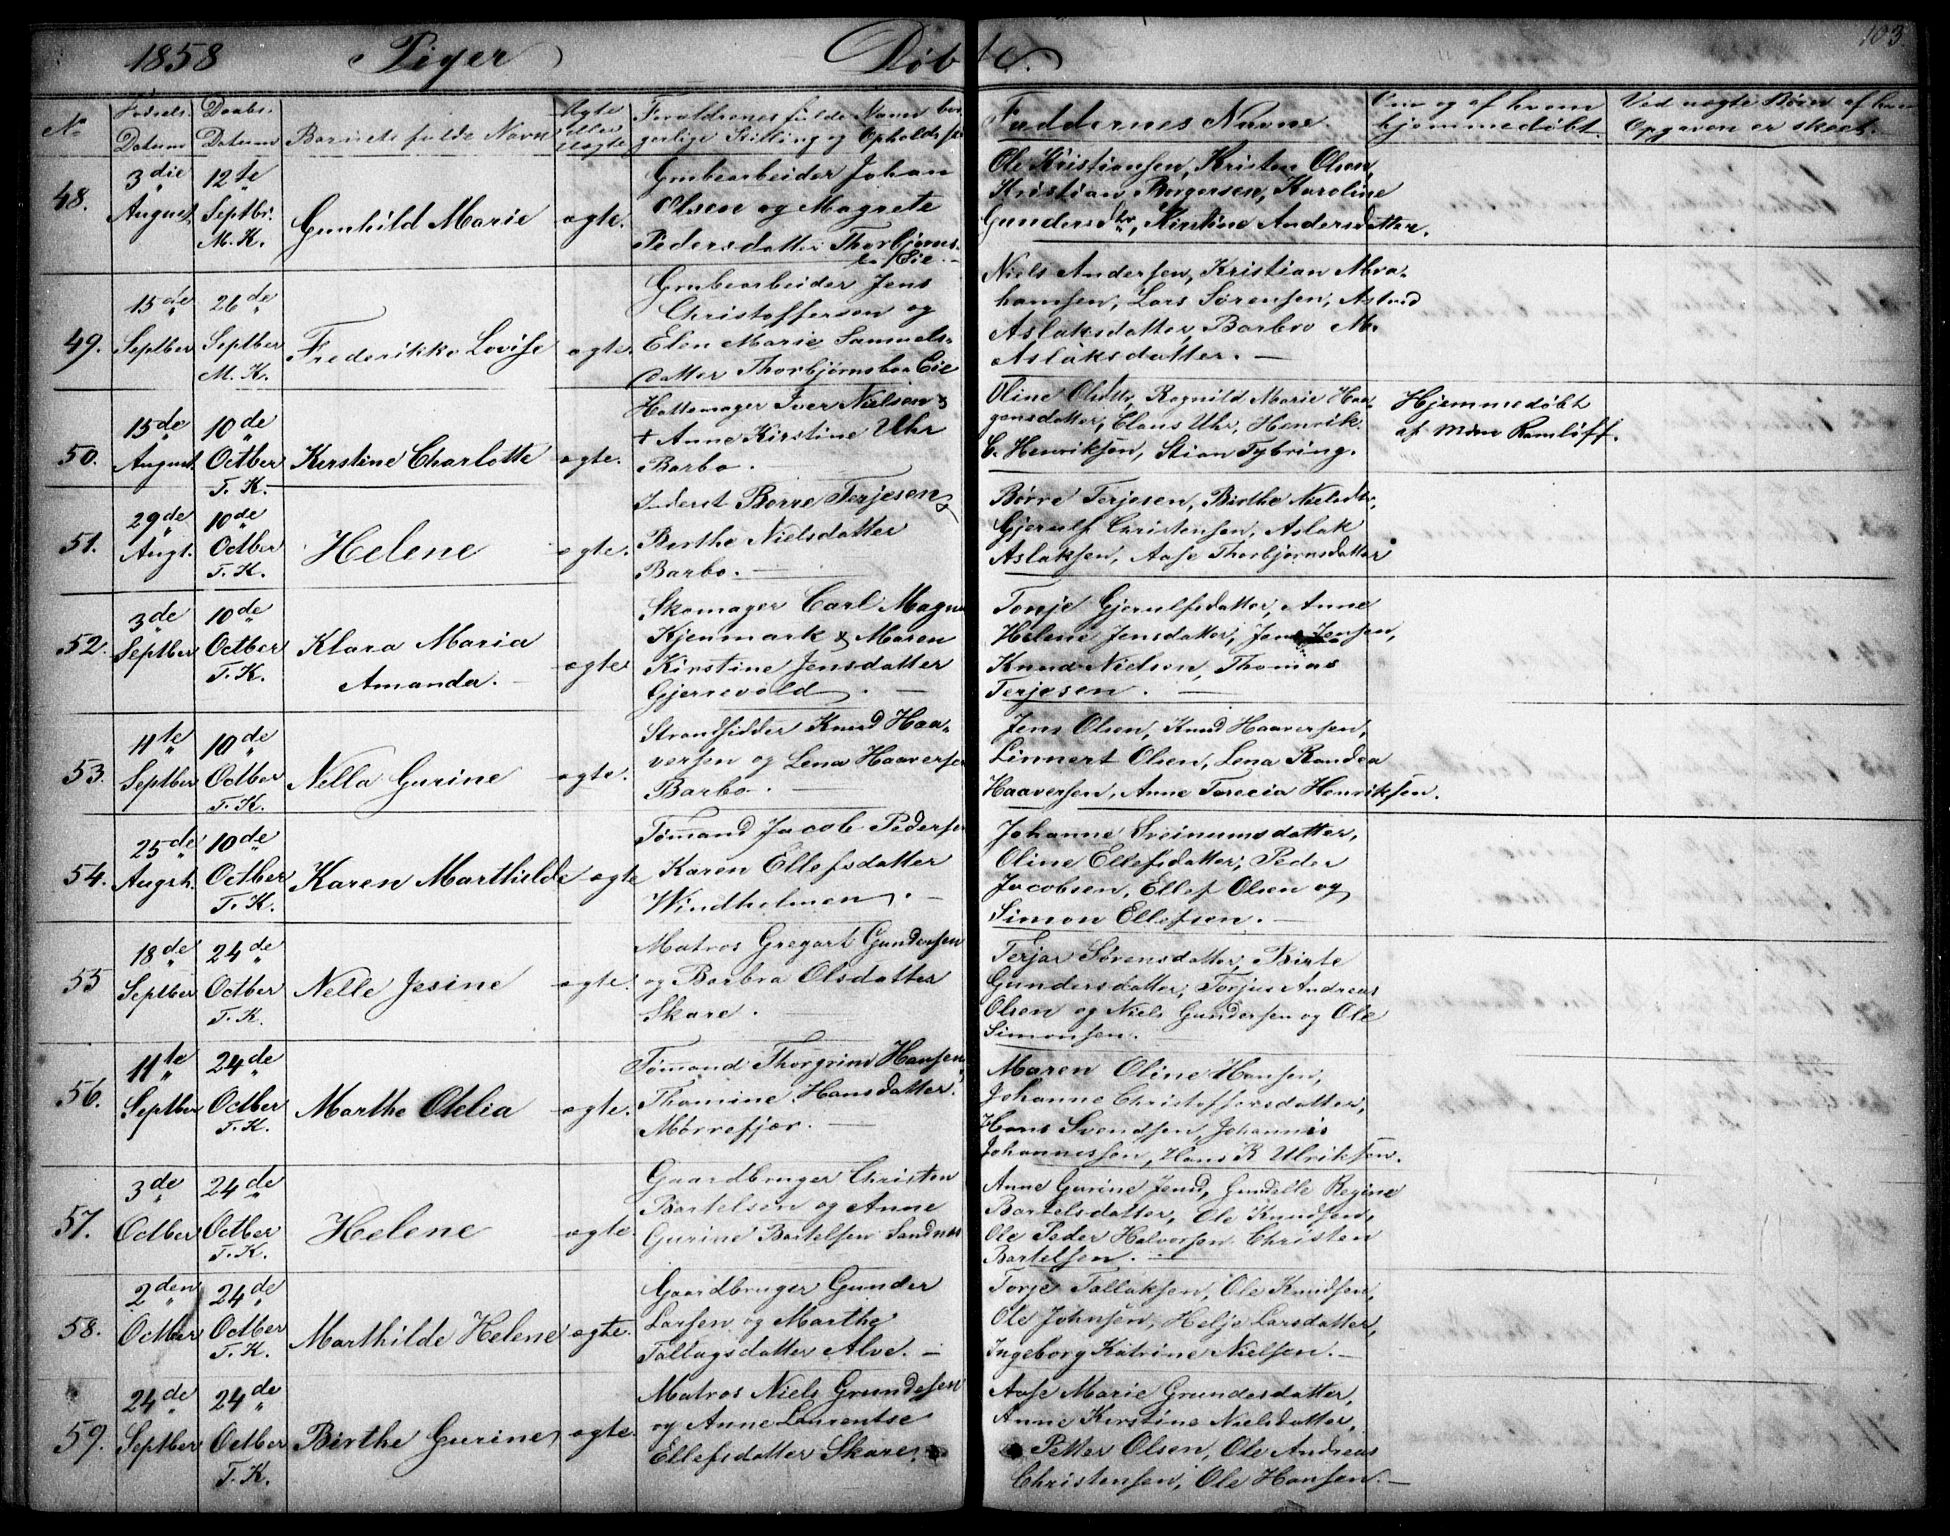 103
1858 Piger Døbte.
No
Fødsels Datum
Daabs. Datum
Barnets fulde Navn
Ægte eller uægte
Forældrenes fulde Navn bor-
gerlige Stilling og Opholds
Faddernes Navne
og af hvem
hjemmedøbt.
Ved uægte Børn af
Opgaven er skeet.
48.
3die
August
12te
Septbr.
M. K.
Gunhild Marie
ægte.
Grubearbeider Johan
Olsen og Magrete
Pedersdatter Thorbjørns-
bo Eie.
Ole Kristiansen, Kristen Olsen,
Kristian Borgersen, Karoline
Gundersdtr, Kirstine Andersdatter.
49.
15de
Septber
26de
Septber
M. K.
Frederikke Lovise
ægte.
Grubearbeider Jens
Christoffersen og
Elen Marie Samuels-
datter Thorbjørnsboe Eie
Niels Andersen, Kristian Abra-
hamsen, Lars Sørensen, Astrid
Aslaksdatter, Barbro M.
Aslaksdatter.
50.
15de
August
10de
Octber
T. K.
Kirstine Charlotte
ægte.
Hattemager Iver Nielsen &
+ Anne Kirstine Uhr
Barbo.
Oline Olsdtr, Ragnild Marie Haa-
gensdatter, Claus Uhr, Henrik.
C. Henriksen, Stian Tybring.
Hjemmedøbt
af Mdme Ramløff.
51.
29de
Augt.
10de
Octber
T. K.
Helene
ægte.
Inderst Børre Terjesen &
Birthe Nielsdatter
Barbo.
Børre Terjesen, Birthe Nielsdtr,
Gjerulf Christensen, Aslak
Aslaksen, Aase Thorbjørnsdatter
52.
3de
Septber
10de
Octber
T. K.
Klara Maria
Amanda.
ægte
Skomager Carl Magn
Kjenmark & Maren
Kirstine Jensdatter
Gjerrevold.
Tonje Gjerulfsdatter, Anne
Helene Jensdatter, Jens Jensen,
Knud Nielsen, Thomas
Terjesen.
53.
4te
Septber
10de
Octber
T. K.
Nella Gurine
ægte.
Strandsidder Knud Haa-
versen og Lena Haaversen
Barbo.
Jens Olsen, Knud Haaversen,
Linnert Olsen, Lena Randea
Haaversen, Anne Terecia Henriksen.
54.
25de
Augst.
10de
Octber
T. K.
Karen Marthilde
ægte
Tømand Jacob Pedersen
Karen Ellefsdatter
Windholmen.
Johanne Sveinumsdatter,
Oline Ellefsdatter, Peder
Jacobsen, Ellef Olsen og
Simon Ellefsen.
55
18de
Septber
24de
Octber
T. K.
Nelle Jesine
ægte.
Matros Gregart Gundersen
og Barbra Olsdatter
Skare.
Terjar Sørensdatter, Birte
Gundersdatter, Torjus Andreas
Olsen og Niels Gundersen og Ole
Simonsen.
56.
11te
Septber
24de
Octber
T. K.
Marthe Otelia
ægte.
Tømand Thorgrim Hansen,
Thomine Hansdatter.
Mørrefjær.
Maren Oline Hansen,
Johanne Christoffersdatter,
Hans Svendsen, Johannis
Johannessen, Hans R Ulriksen.
57.
3de
Octber
24de
Octber
T. K.
Helene
ægte.
Gaardbruger Christen
Bartelsen og Anne
Gurine Bertelsen Sandnes
Anne Gurine Jensd, Gundelle Regine
Bartelsdatter, Ole Knudsen,
Ole Peder Halvorsen Christen
Bartelsen.
58.
2den
Octber
24de
Octber
T. K.
Marthilde Helene
ægte.
Gaardbruger Gunder
Larsen og Marthe
Tallagsdatter Alve.
Torje Tallaksen, Ole Knudsen,
Ole Johnsen, Helje Larsdatter,
Ingeborg Katrine Nielsen.
59.
24de
Septber
24de
Octber
T. K.
Birthe Gurine
ægte.
Matros Niels Grundesen
og Anne Laurentse
Ellefsdatter Skare.
Aase Marie Grundesdatter,
Anne Kirstine Nielsdatter,
Petter Olsen, Ole Andreas
Christensen, Ole Hansen.